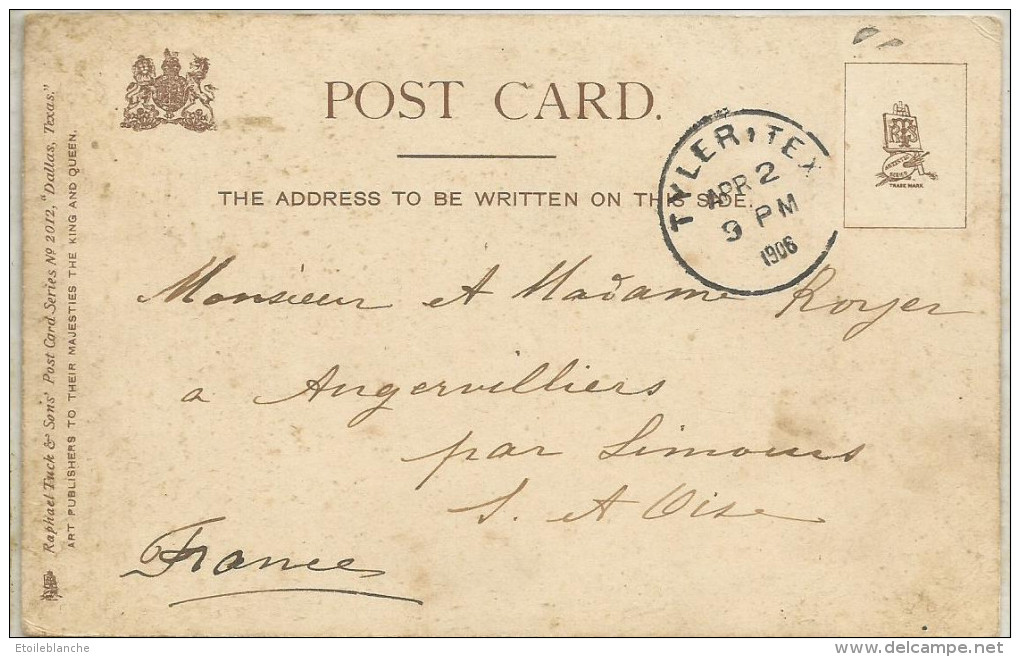 POST CARD.
THE ADDRESS TO BE WRITTEN ON THIS SIDE.
TYLER, TEX
APR 2
9 PM
1906
RTS
ARTISTIC
SERIES
TRADE MARK.
Monsieur et Madame Royer
a Angervilliers
par Limours
S. et Oise
France
Raphael Tuck & Sons' Post Card Series No 2012, "Dallas, Texas."
ART PUBLISHERS TO THEIR MAJESTIES THE KING AND QUEEN.
Etoileblanche
www.delcampe.net